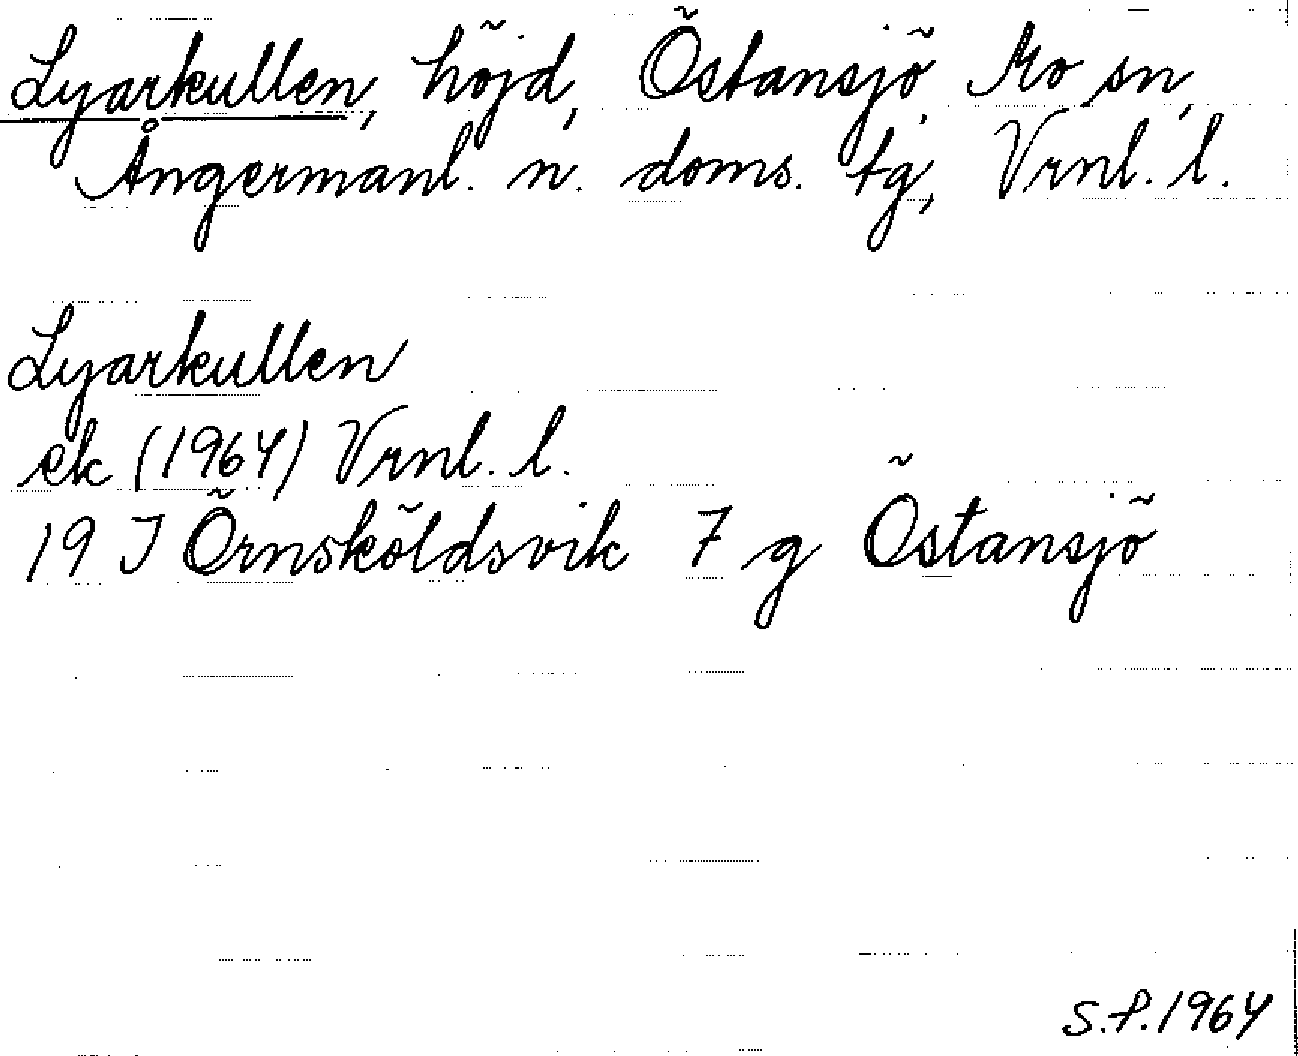 Lyarkullen, höjd, Östansjö Mo sn,
Ångermanl. n. doms. tg, Vrnl. l.
Lyarkullen
ek (1964) Vrnl. l.
19 J Örnsköldsvik 7 g Östansjö
S.P. 1964